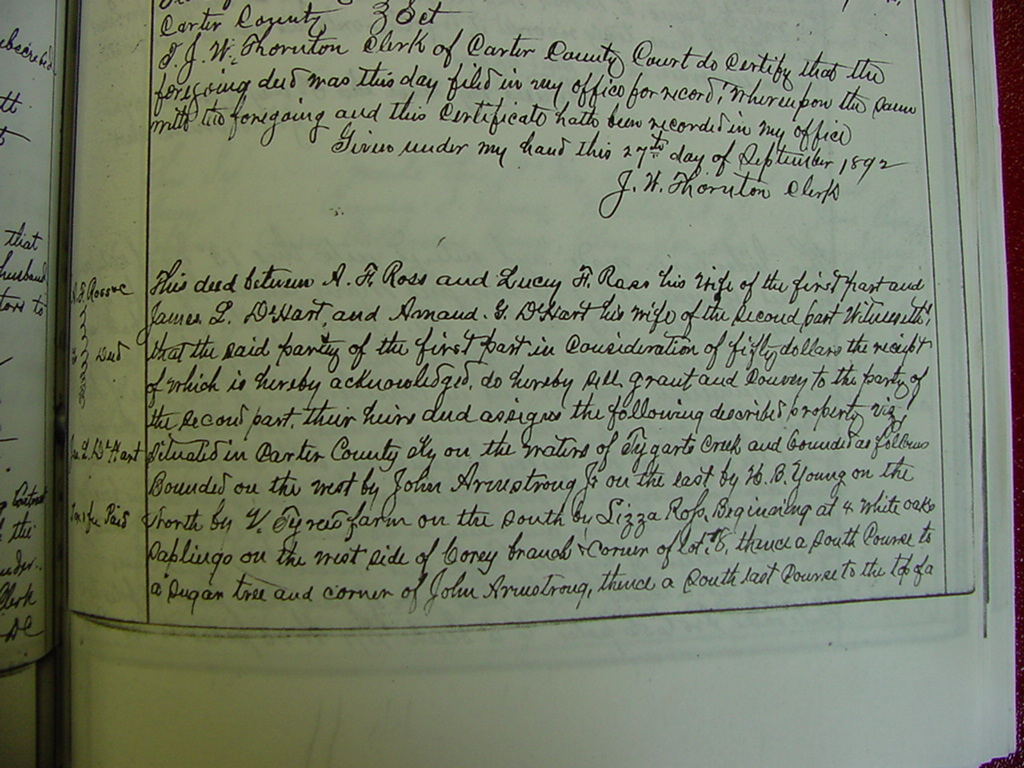 Carter County } Sct
I, J. W. Thornton Clerk of Carter County Court do certify that the
foregoing deed was this day filed in my office for record, whereupon the same
with the foregoing and this certificate hath been recorded in my office
Given under my hand this 27th day of September 1892
J. W. Thornton Clerk
A. F. Ross &c
This deed between A. F. Ross and Lucy F. Ross his wife of the first part and
James L. DeHart, and Amand. G. DeHart his wife of the second part Witnesseth,
Deed
that the said party of the first part in consideration of fifty dollars the receipt
of which is hereby acknowledged, do hereby sell grant and convey to the party of
the second part, their heirs and assigns the following described property viz
L. DeHart
Situated in Carter County Ky on the waters of Tygarts Creek and bounded as follows
Bounded on the west by John Armstrong Jr on the east by W. B. Young on the
Tax & fee Paid
North by V. Tyree farm on the south by Lizza Ross, Beginning at 4 white oak
saplings on the west side of Corey branch & corner of lot # 8, thence a South Course to
a sugar tree and corner of John Armstrong, thence a South East Course to the top of a
that
husband
the
Clerk
DC